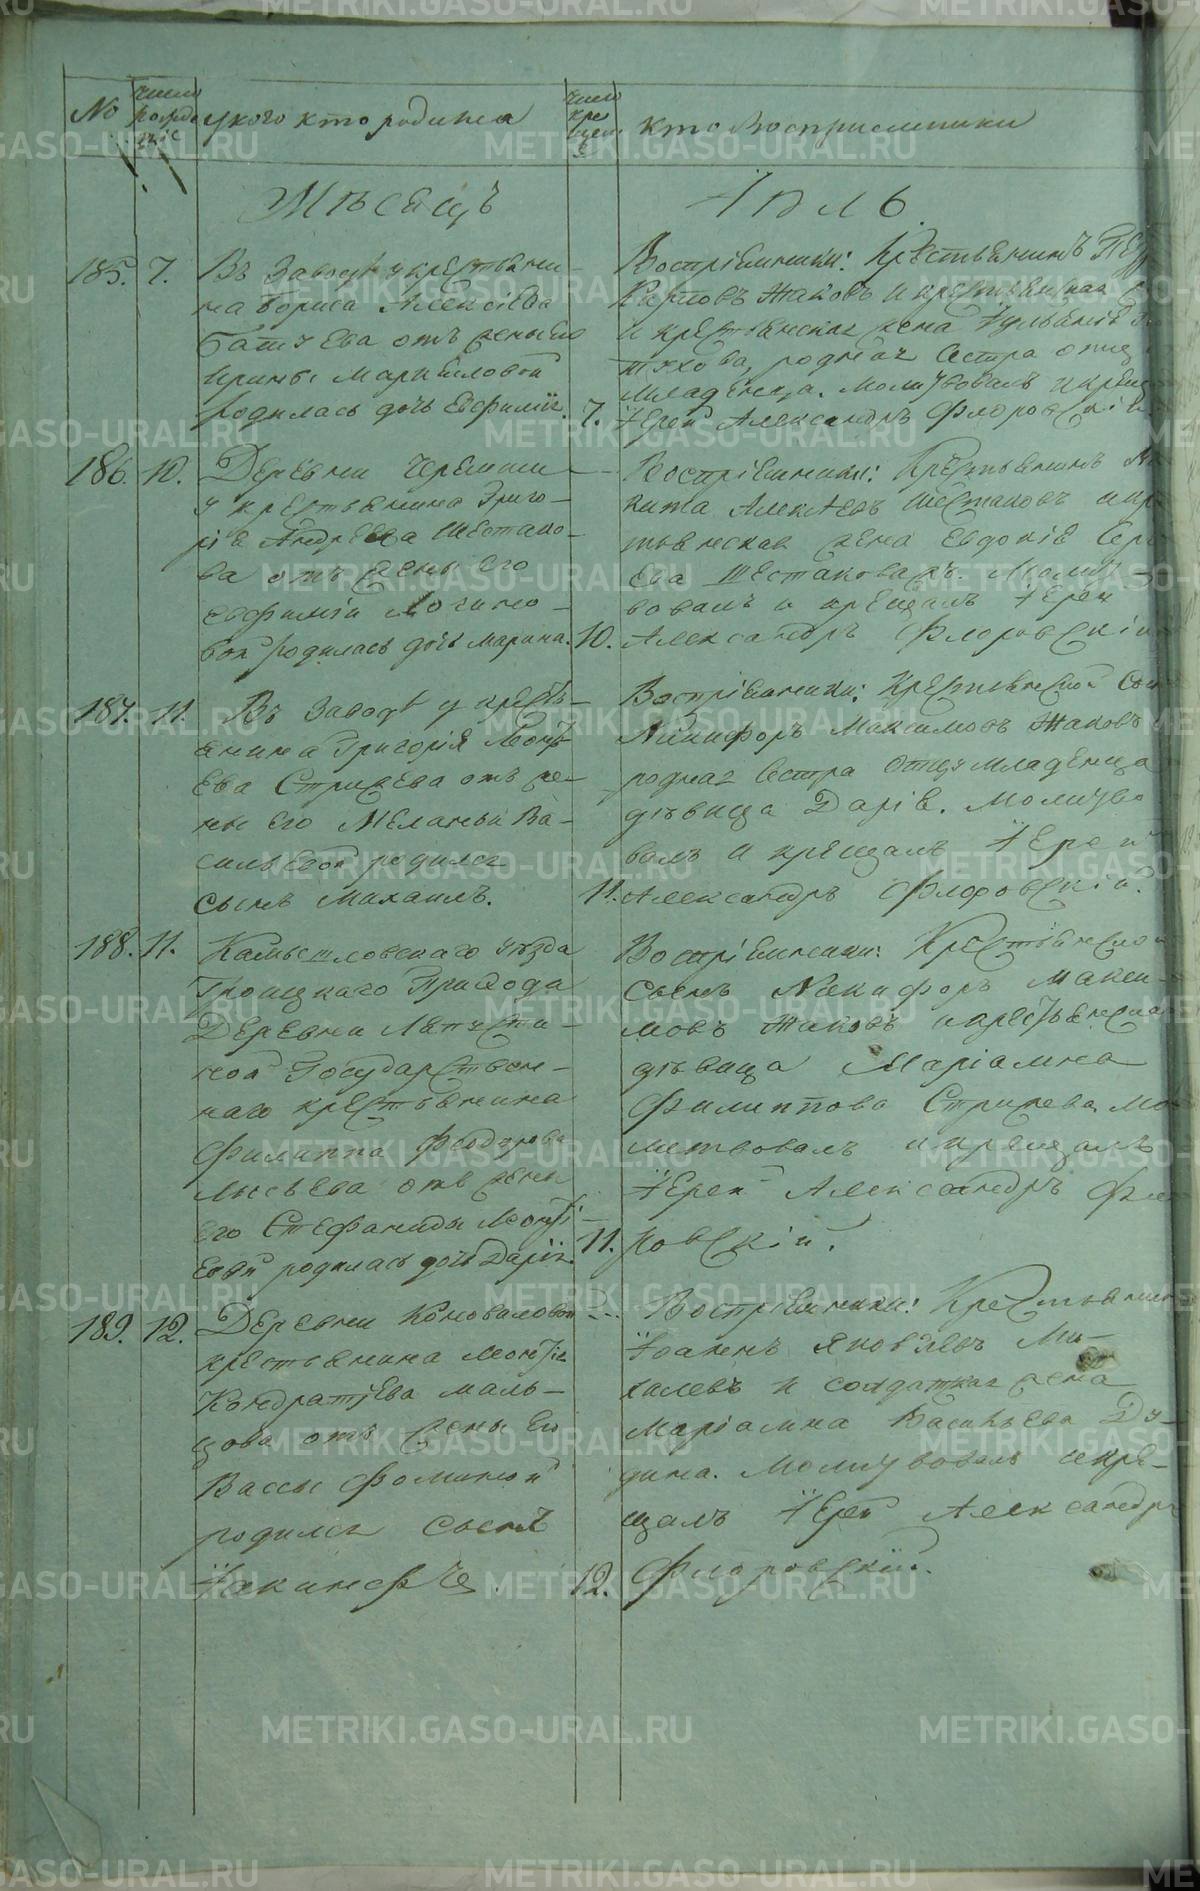 No
число рожде нія
у кого кто родился
число кре щен.
кто восприемники
Мѣсяцъ Іюль
185. 7. Въ Заводѣ у крестьяни-
на Бориса Алексіева
отъ жены его
Ирины Маркеловой
родилась дочь Евфимія. 7.
Воспріемники: Крестьянинъ
Карповъ Жаковъ и крестьянская
и крестьянская жена Іульянія
родная сестра отца
младенца. Молитвовалъ и крещ
Іерей Александръ Флоровскій.
186. 10. Деревни Черемши
у крестьянина Григо-
рія Андреева Шестако-
ва отъ жены его
Евфиміи Логино-
вой родилась дочь Марина. 10.
Воспріемники: Крестьянинъ
кита Алексѣевъ Шестаковъ и кре
тьянская жена Евдокія Серг
ева Шестаковыхъ. Молит-
вовалъ и крещалъ Іерей
Александръ Флоровскій
187. 11. Въ Заводѣ у кресть-
янина Григорія Леонть
ева Стрижева отъ же-
ны его Меланьи Ва-
сильевой родился
сынъ Михаилъ. 11.
Воспріемники: Крестьянской сын
Никифоръ Максимовъ Жаковъ и
родная сестра отцу младенца
дѣвица Дарія. Молитво
валъ и крещалъ Іерей
Александръ Флоровскій.
188. 11. Камышловскаго уѣзда
Троицкаго Прихода
Деревни
ной Государствен-
наго крестьянина
Филиппа Феодорова
Лысьева отъ жены
его Стефаниды Леонті-
евой родилась дочь Дарія. 11.
Воспріемники: Крестьянской
сынъ Никифоръ Макси-
мовъ Жаковъ и крестьянская
дѣвица Маріамна
Филиппова Стрижева. Мо
литвовалъ и крещалъ
Іерей Александръ Фло
ровскій.
189. 12. Деревни Коноваловой
крестьянина Леонтія
Кондратіева Маль-
цова отъ жены его
Вассы Фоминой
родился сынъ
Іакинфъ. 12.
Воспріемники: Крестьянинъ
Іоаннъ Яковлевъ Ми-
халевъ и солдатская жена
Маріамна Васильева Ду-
дина. Молитвовалъ и кре-
щалъ Іерей Александръ
Флоровскій.
METRIKI.GASO-URAL.RU